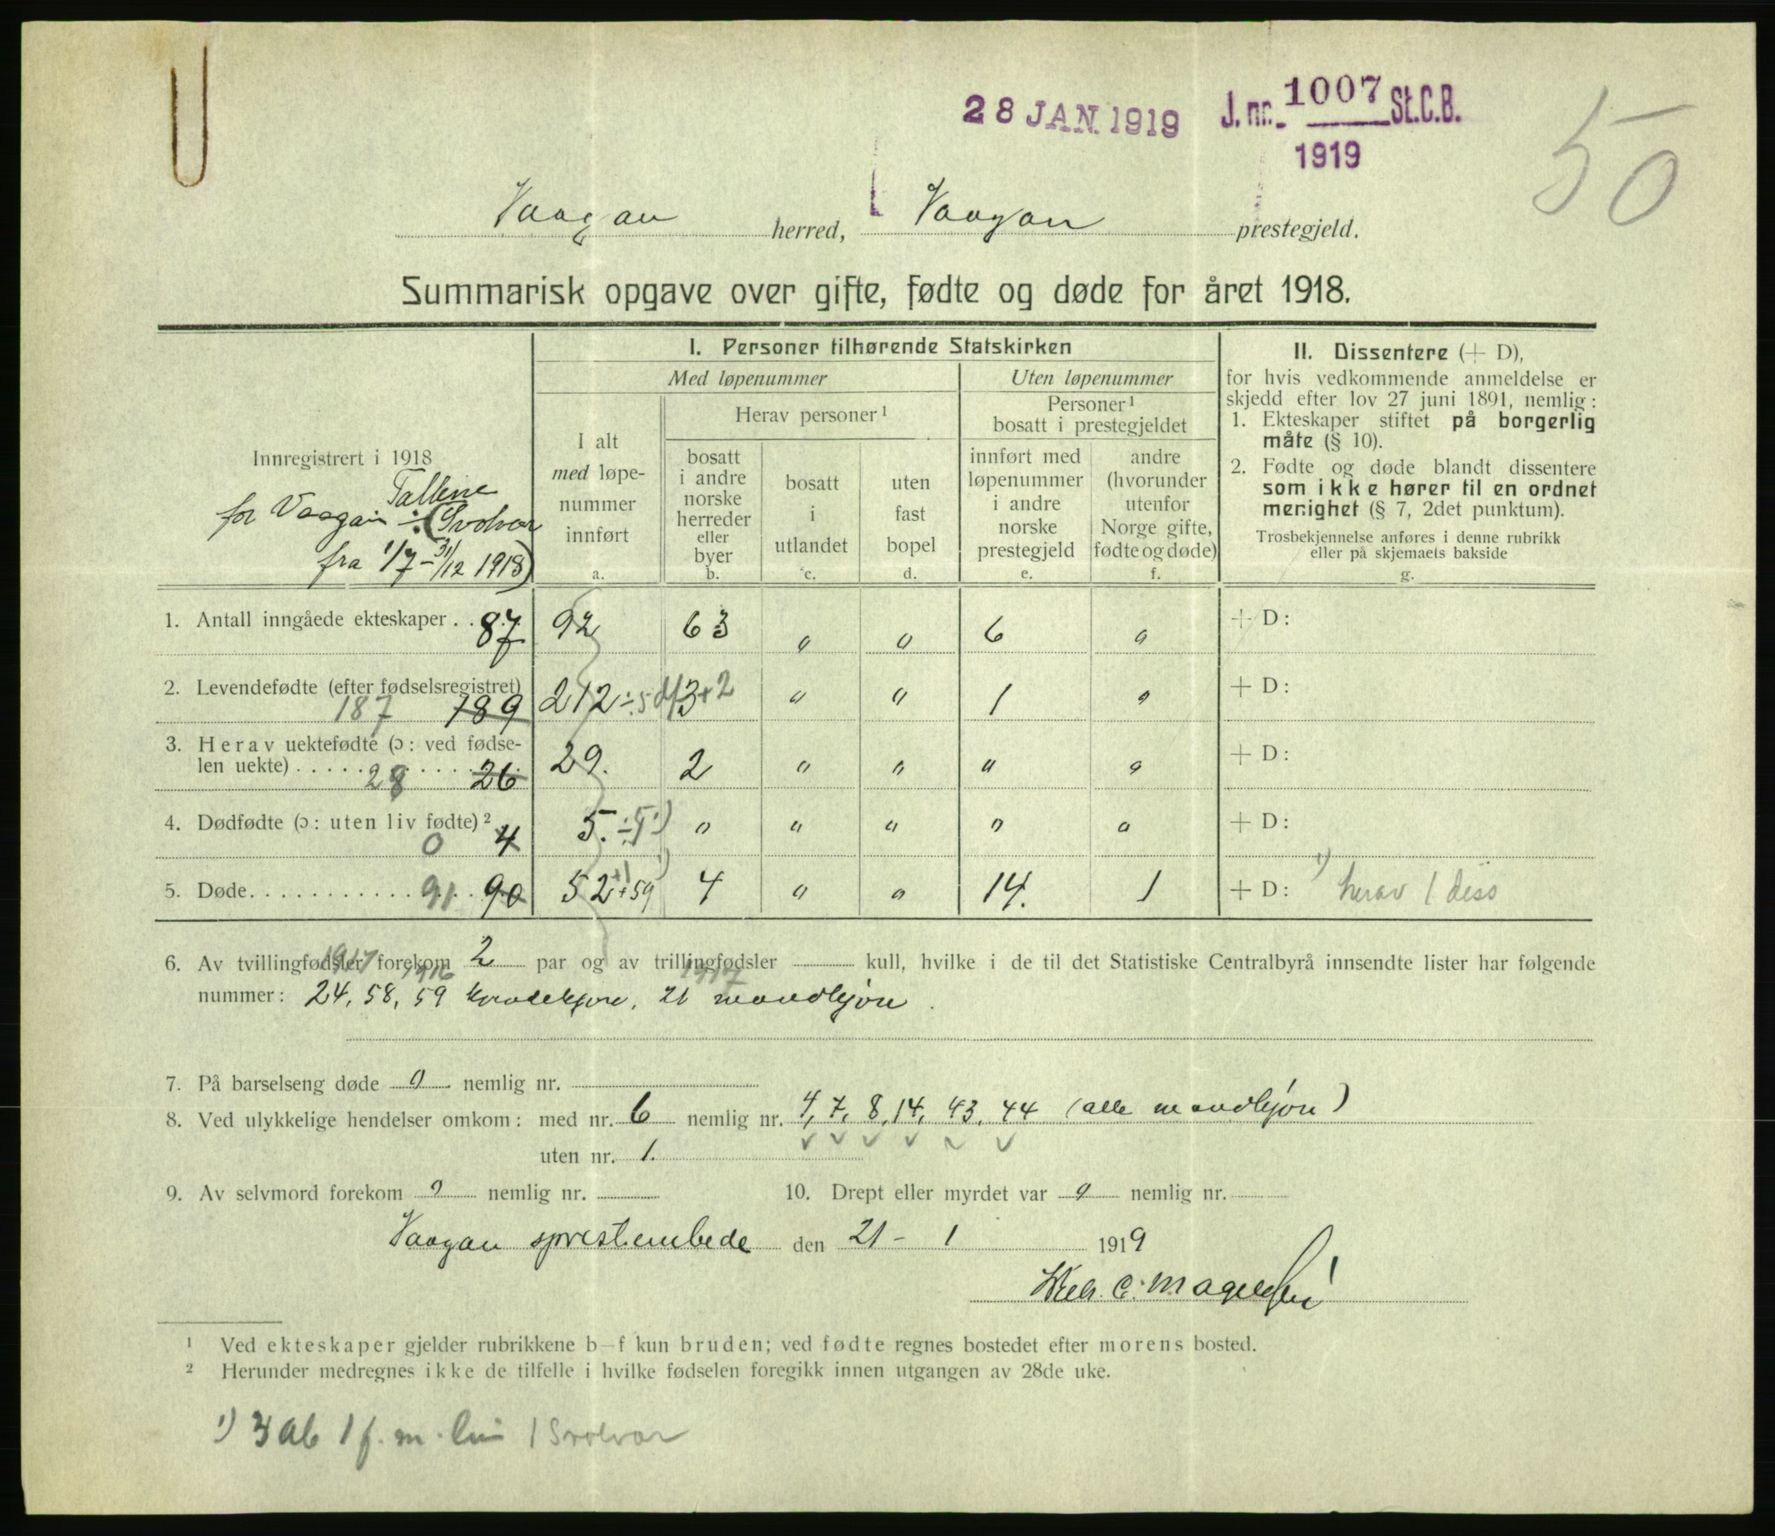 28 JAN. 1919
J. nr. 1007 St.C.B.
1919
50
Vaagan herred, Vaagan prestegjeld.
Summarisk opgave over gifte, fødte og døde for året 1918.
Innregistrert i 1918
Tallene
for Vaagan ÷ (Svolvær
fra 1/7 – 31/12 1918)
I. Personer tilhørende Statskirken
Med løpenummer
Uten løpenummer
I alt
med løpe-
nummer
innført
a.
Herav personer¹
bosatt
i andre
norske
herreder
eller
byer
b.
bosatt
i
utlandet
c.
uten
fast
bopel
d.
Personer¹
bosatt i prestegjeldet
innført med
løpenummer
i andre
norske
prestegjeld
e.
andre
(hvorunder
utenfor
Norge gifte,
fødte og døde)
f.
II. Dissentere (+ D),
for hvis vedkommende anmeldelse er
skjedd efter lov 27 juni 1891, nemlig:
1. Ekteskaper stiftet på borgerlig
måte (§ 10).
2. Fødte og døde blandt dissentere
som ikke hører til en ordnet
menighet (§ 7, 2det punktum).
Trosbekjennelse anføres i denne rubrikk
eller på skjemaets bakside
g.
1. Antall inngåede ekteskaper . . 87 92 63 " " 6 " + D:
2. Levendefødte (efter fødselsregistret)
187 189 212 ÷ 5 d 13+2 " " 1 " + D:
3. Herav uektefødte (ɔ: ved fødse-
len uekte) . . . . 28 26 29. 2 " " " " + D:
4. Dødfødte (ɔ: uten liv fødte)²
0 4 5. ÷5 ¹) " " " " " + D:
5. Døde . . . . 91 90 52 +1 +59 ¹) 4 " " 14. 1 + D: ¹) herav 1 diss
6. Av tvillingfødsler forekom 2 par og av trillingfødsler kull, hvilke i de til det Statistiske Centralbyrå innsendte lister har følgende
1917 1916 1917
nummer: 24, 58, 59 kvindekjøn, 21 mandkjøn.
7. På barselseng døde 0 nemlig nr.
8. Ved ulykkelige hendelser omkom: med nr. 6 nemlig nr. 4, 7, 8, 14, 43, 44 (alle mandkjøn)
uten nr. 1.
9. Av selvmord forekom 0 nemlig nr. 10. Drept eller myrdet var 0 nemlig nr.
Vaagan sprestembede den 21 – 1 1919
C. Magelssen
¹ Ved ekteskaper gjelder rubrikkene b–f kun bruden; ved fødte regnes bostedet efter morens bosted.
² Herunder medregnes ikke de tilfelle i hvilke fødselen foregikk innen utgangen av 28de uke.
¹) 3 ab 1 f. m. liv 1 Svolvær